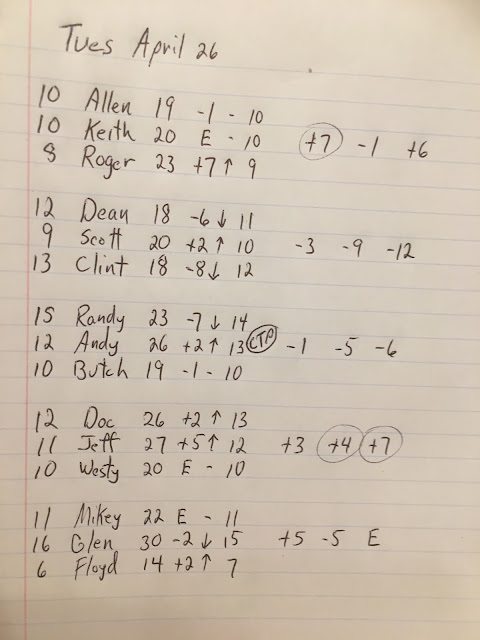 Tues April 26
10 Allen 19 -1 - 10
10 Keith 20 E - 10 +7 -1 +6
8 Roger 23 +7 ↑ 9
12 Dean 18 -6 ↓ 11
9 Scott 20 +2 ↑ 10 -3 -9 -12
13 Clint 18 -8 ↓ 12
15 Randy 23 -7 ↓ 14
12 Andy 26 +2 ↑ 13 CTP -1 -5 -6
10 Butch 19 -1 - 10
12 Doc 26 +2 ↑ 13
11 Jeff 27 +5 ↑ 12 +3 +4 +7
10 Westy 20 E - 10
11 Mikey 22 E - 11
16 Glen 30 -2 ↓ 15 +5 -5 E
6 Floyd 14 +2 ↑ 7